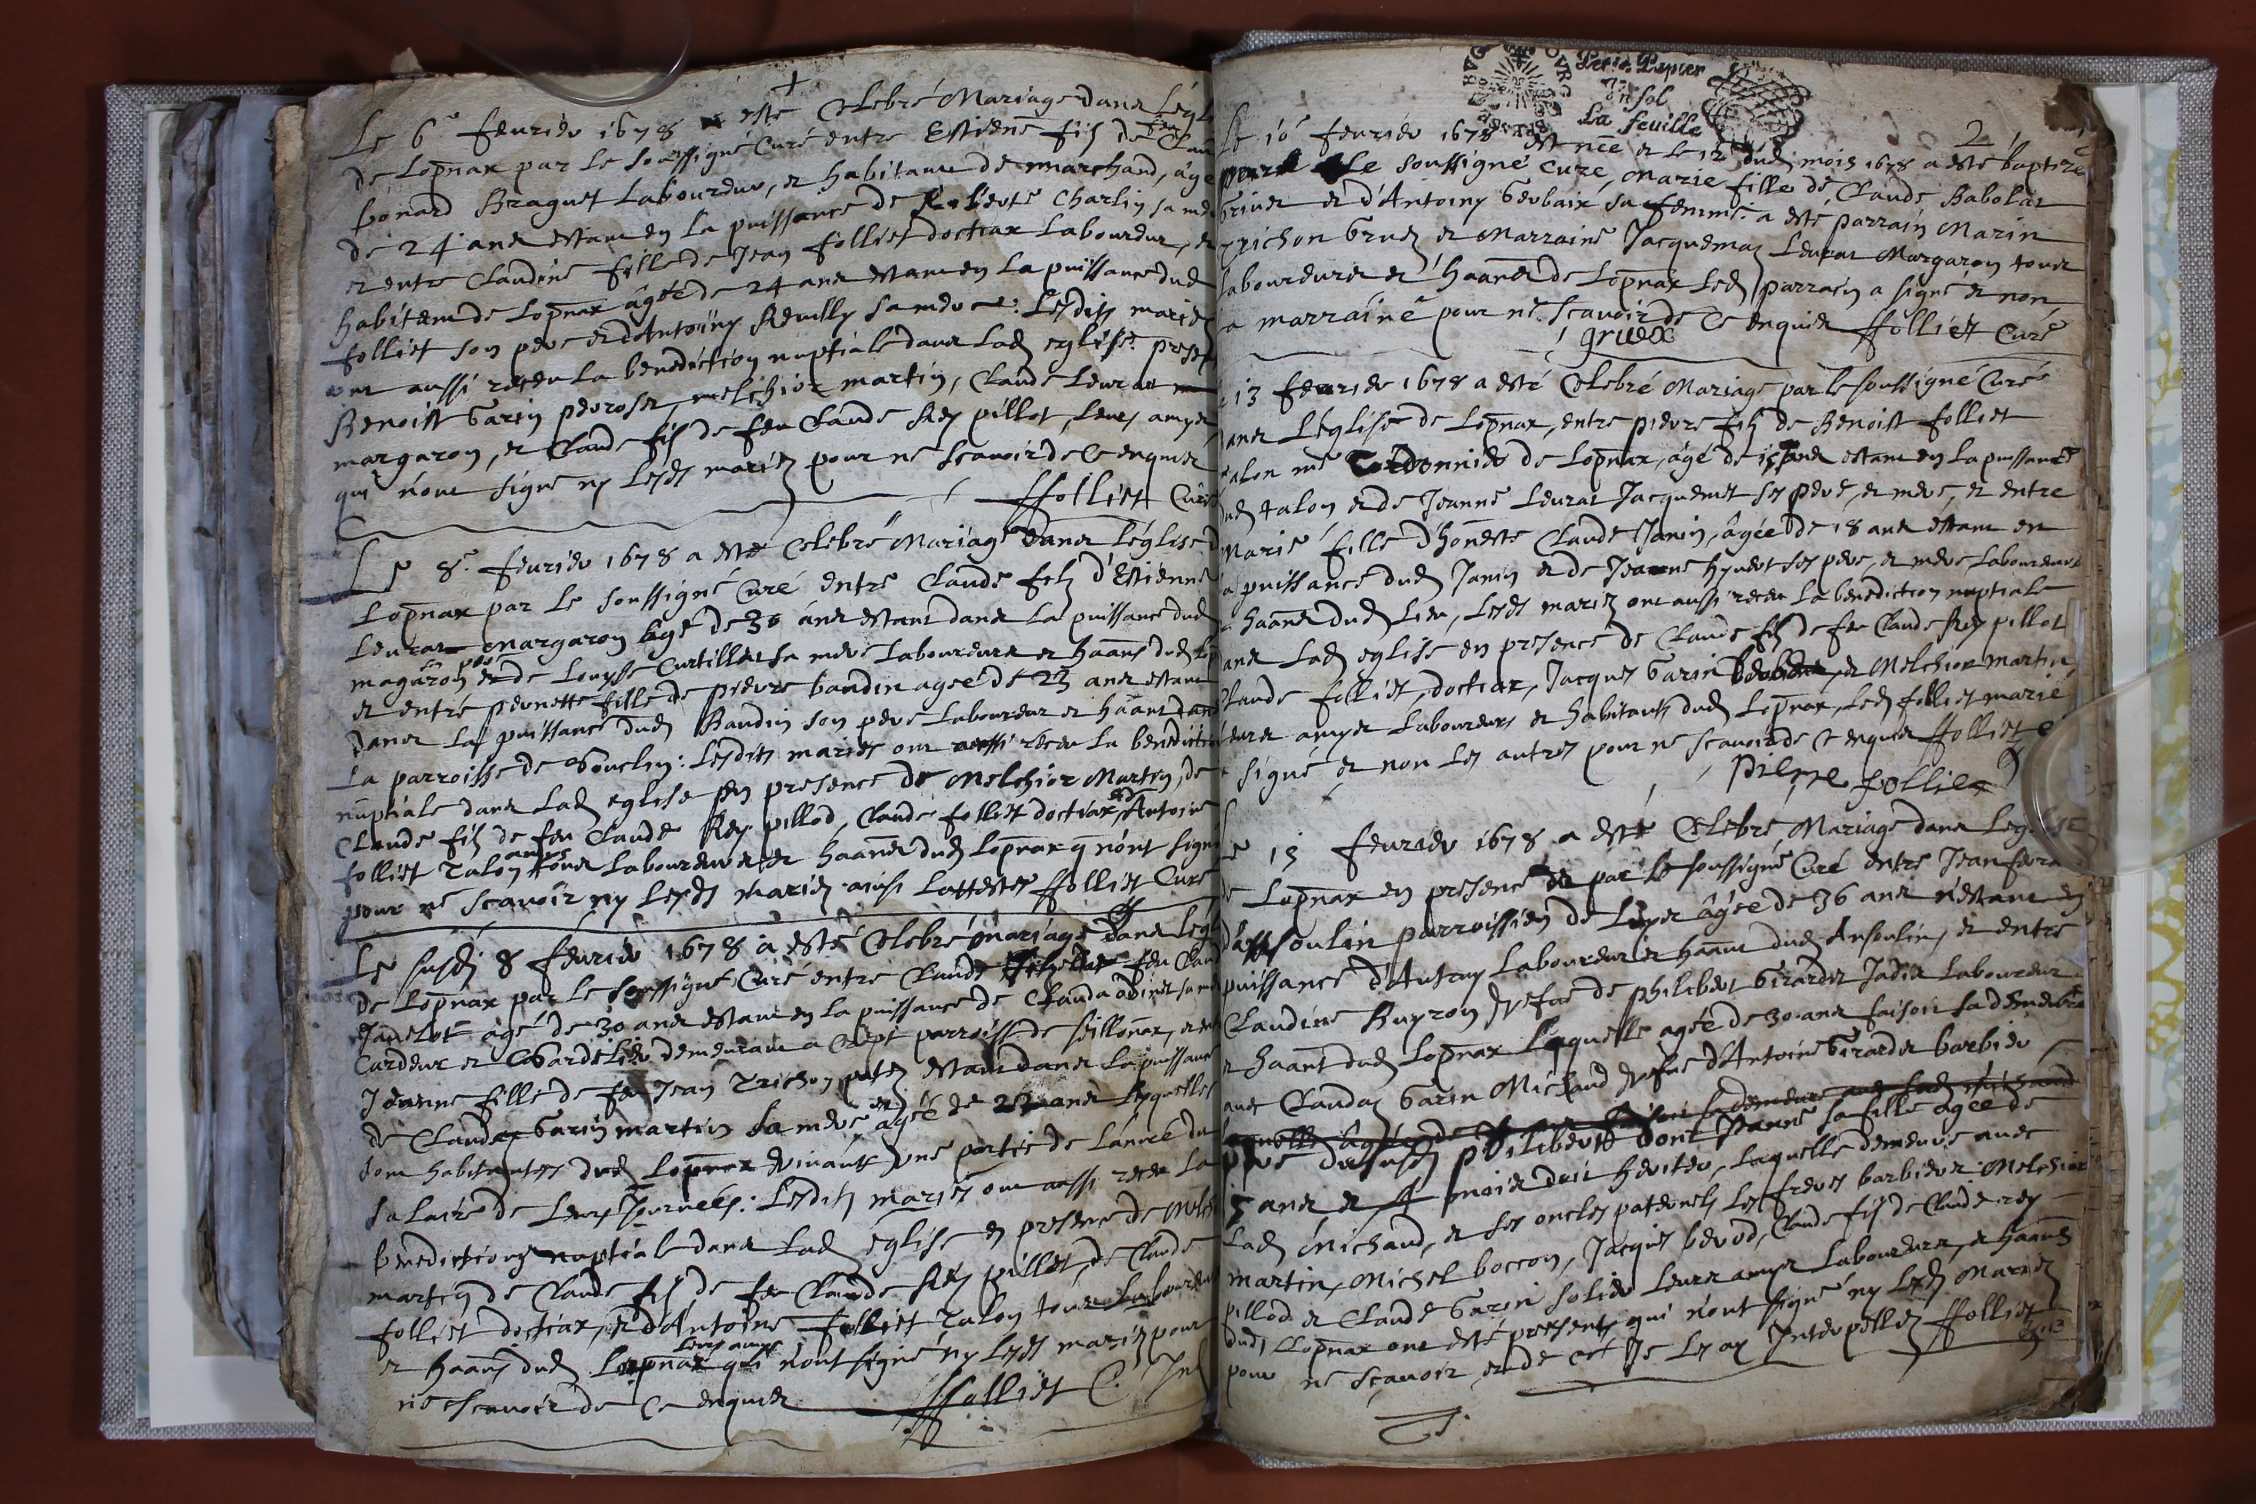 Le 6e feurier 1678 a esté Celebré Mariage dans Légl
de Lopnax par Le soussigné Curé entre Estiene fils de feu Clau
bonard Braguet Laboureur, et habitant de marchand, âgé
de 24 ans estant en La puissance de Philiberte Charlin sa me
et entre Claudine fille de Jean folliet doctiax Laboureur, et
habitant de Lopnax âgée de 24 ans estant en La puissance dud
folliet son pere et d'Antoiny Reuilly sa mere: Lesdits mariés
ont aussi receu La benediction nuptiale dans Lad eglise presen
Benoist Garin perroset, melchior martin, Claude Leurat
margaron, et Claude fils de feu Claude Rey pillot, Leurs amys,
qui n'ont signé ny Lesds mariez pour ne scauoir de ce enquis
ffolliet Curé
Le 8e feurier 1678 a esté Celebré Mariage dans L'église d
Lopnax par Le soussigné Curé entre Claude fils d'Estienne
Leurat Margaron âgé de 30 ans estant dans La puissance dud
magaron pere et de Louyse Curtillet sa mere Laboureurs et haans dud Lop
et entre pernette fille de pierre baudin agée de 23 ans estant
dans La puissance dud Baudin son pere Laboureur et haant dans
La parroisse de Couclin: Lesdits mariés ont aussi receu La benediction
nuptiale dans Lad eglise en presence de Melchior Martin, de
Claude fils de feu Claude Rey pillod, Claude folliet doctiax, et d'Antoine
folliet Talon amys tous Laboureurs et haans dud Lopnax q n'ont signé
pour ne scauoir ny Lesds mariez ainsi L'atteste ffolliet Curé
Le susd 8 feurier 1678 a esté Celebré mariage dans Légl
de Lopnax par Le soussigné Curé entre Claude feu Claud
Janelot agé de 30 ans estant en La puissance de Clauda sa me
Cardeur et demeurant a parroisse de seillonax, et en
Jeanne fille de feu Jean Trichon estant dans La puissance
de Claude Garin martin sa mere agée de 22 ans Lesquelles
sont habitantes dud Lopnax viuants vne partie de L'année du
salaire de Leurs Journées: Lesdits mariés ont aussi receu La
benediction nuptiale dans Lad église en presence de Melch
martin de Claude fils de feu Claude Rey pillot, de Claude
folliet doctiax, et d'Antoine folliet Talon tous Laboureurs
et haans dud Lopnax Leurs amys qui n'ont signé ny Lesds mariez pour
ne scauoir de ce enquis ffolliet C.
Petit Papier
Vn sol
La feuille
2
Le 10e feurier 1678 est née et le 12 dud mois 1678 a esté baptizée
par Le soussigné Curé, Marie fille de Claude Babolat
Griuet et d'Antoiny Gerbaix sa femme: a esté parrain Marin
Trichon Gruez et Marraine Jacquemaz Leurat Margaron tous
Laboureurs et haans de Lopnax Led parrain a signé et non
La marraine pour ne scauoir de ce enquis ffolliet Curé
gruex
Le 13 feurier 1678 a esté Celebré Mariage par le soussigné Curé
dans L'église de Lopnax, entre pierre fils de Benoist folliet
Talon me Cordonnier de Lopnax, âgé de ans estant en La puissance
dud Talon et de Jeanne Leurat Jacquemet ses pere, et mere, et entre
Marie fille d'honeste Claude Janin, âgée de 18 ans estant en
La puissance dud Janin et de Jeanne ses pere, et mere Laboureurs
et haans dud Lieu, Lesds mariez ont aussi receu La benediction nuptiale
dans Lad eglise en presence de Claude fils de feu Claude Rey pillot
Claude folliet, doctiax, Jacques Garin et Melchior martin
Leurs amys Laboureurs et habitants dud Lopnax, Led folliet marié
a signé et non Les autres pour ne scauoir de ce enquis ffolliet C
pierre follier
Le 15 feurier 1678 a esté Celebré Mariage dans Leglise
de Lopnax en presence et par le soussigné Curé entre Jean
d'assoulin parroissien de âgé de 36 ans n'estant en
puissance d'Autruy Laboureur et haant dud Ansoulin, et entre
Claudine Buyron vefue de philibert Girardet Jadis Laboureur
et haant dud Lopnax Laquelle agée de 30 ans faisoit sa demeure
auec Claudaz Garin Michaud vefue d'Antoine Girardet barbier
pere dususd philibert dont Jeanne sa fille agée de
5 ans et 4 mois doit heriter, Laquelle demeure auec
Lad Michaud, et ses oncles paternels Les freres barbiers: Melchior
martin, Michel boccon, Jacques berod, Claude fils de Claude rey
pillod et Claude Garin solier Leurs amys Laboureurs, et haans
dud Lopnax ont esté presents qui n'ont signé ny Lesd Mariez
pour ne scauoir, et de ce Je Les ay Interpellez ffolliet